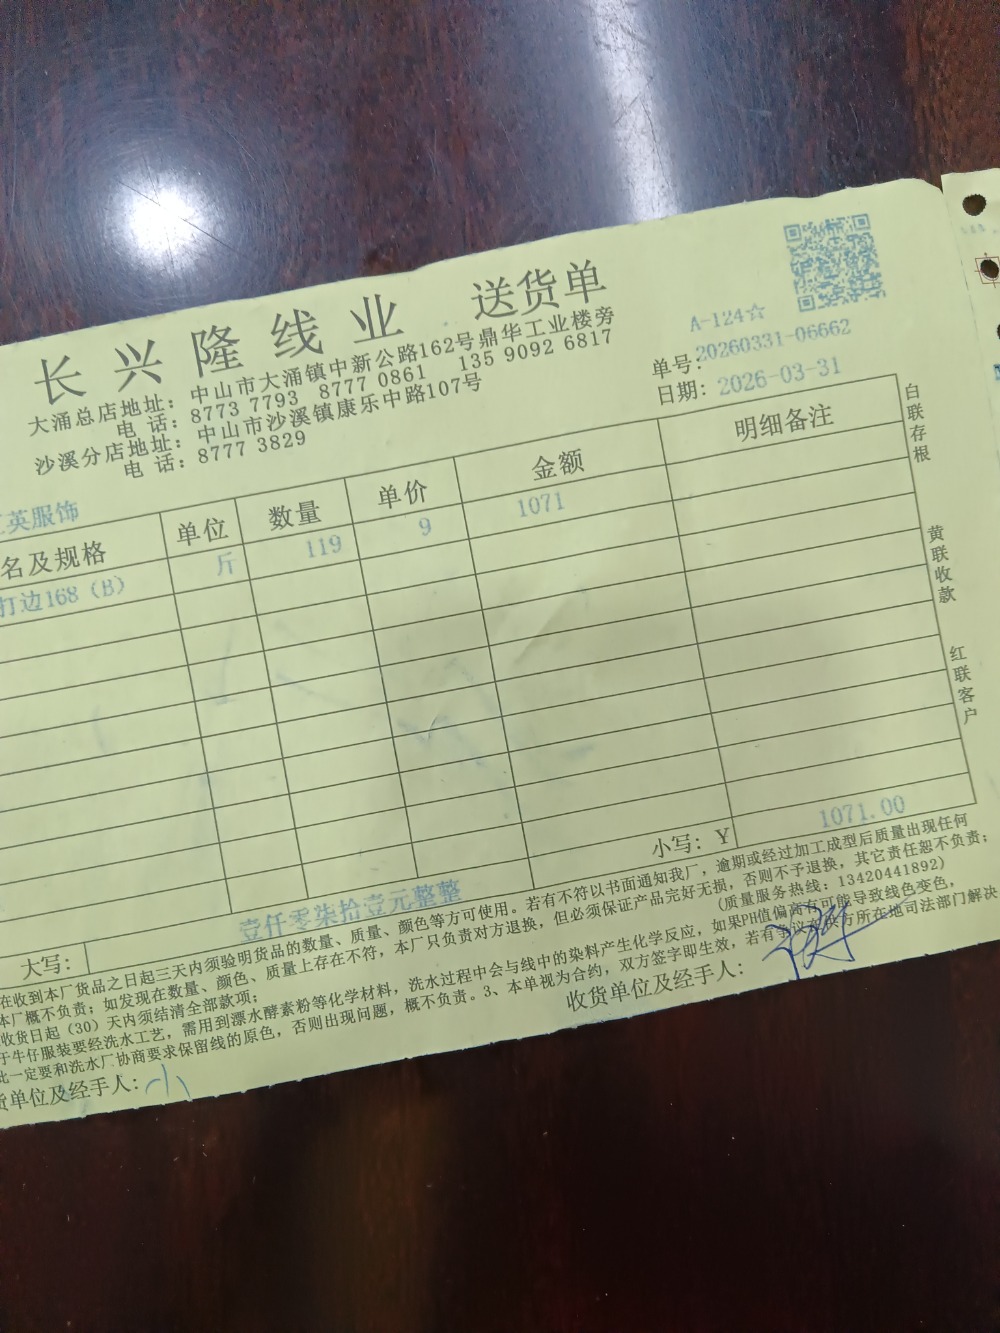 长兴隆线业 送货单
大涌总店地址：中山市大涌镇中新公路162号鼎华工业楼旁
电 话：8773 7793 8777 0861 135 9092 6817
沙溪分店地址：中山市沙溪镇康乐中路107号
电 话：8777 3829
A-124☆
单号：20260331-06662
日期：2026-03-31
英服饰
名及规格 单位 数量 单价 金额 明细备注
打边168（B） 斤 119 9 1071
小写：Y 1071.00
大写： 壹仟零柒拾壹元整整
在收到本厂货品之日起三天内须验明货品的数量、质量、颜色等方可使用。若有不符以书面通知我厂，逾期或经过加工成型后质量出现任何
本厂概不负责；如发现在数量、颜色、质量上存在不符，本厂只负责对方退换，但必须保证产品完好无损，否则不予退换，其它责任恕不负责；
收货日起（30）天内须结清全部款项； （质量服务热线：13420441892）
于牛仔服装要经洗水工艺，需用到漂水酵素粉等化学材料，洗水过程中会与线中的染料产生化学反应，如果PH值偏高有可能导致线色变色，
此一定要和洗水厂协商要求保留线的原色，否则出现问题，概不负责。3、本单视为合约，双方签字即生效，若有争议在供方所在地司法部门解决
货单位及经手人：小 收货单位及经手人：
白联存根
黄联收款
红联客户